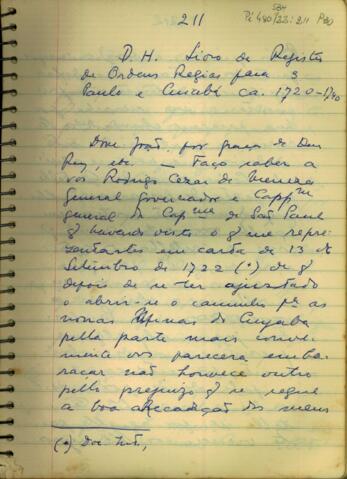 211
584
Pi 480/22: 211 P20
D. H. Livro de Registro
de Ordens Regias para S
Paulo e Cuiabá ca. 1720-1740
Dom João por graça de Deus
Rey, etc. — Faço saber a
vós Rodrigo Cezar de Menezes
General Governador e Capp^m
general da Cap^nia de São Paulo
q havendo visto o q me repre
zentastes em carta de 13 de
Setembro de 1722 (*) de q
depois de se ter ajustado
o abrir-se o caminho p^a as
novas Minas do Cuyaba
pella parte mais conve
niente vos parecera emba
raçar não houvece outro
pello prejuizo q se segue
a boa arecadação dos meus